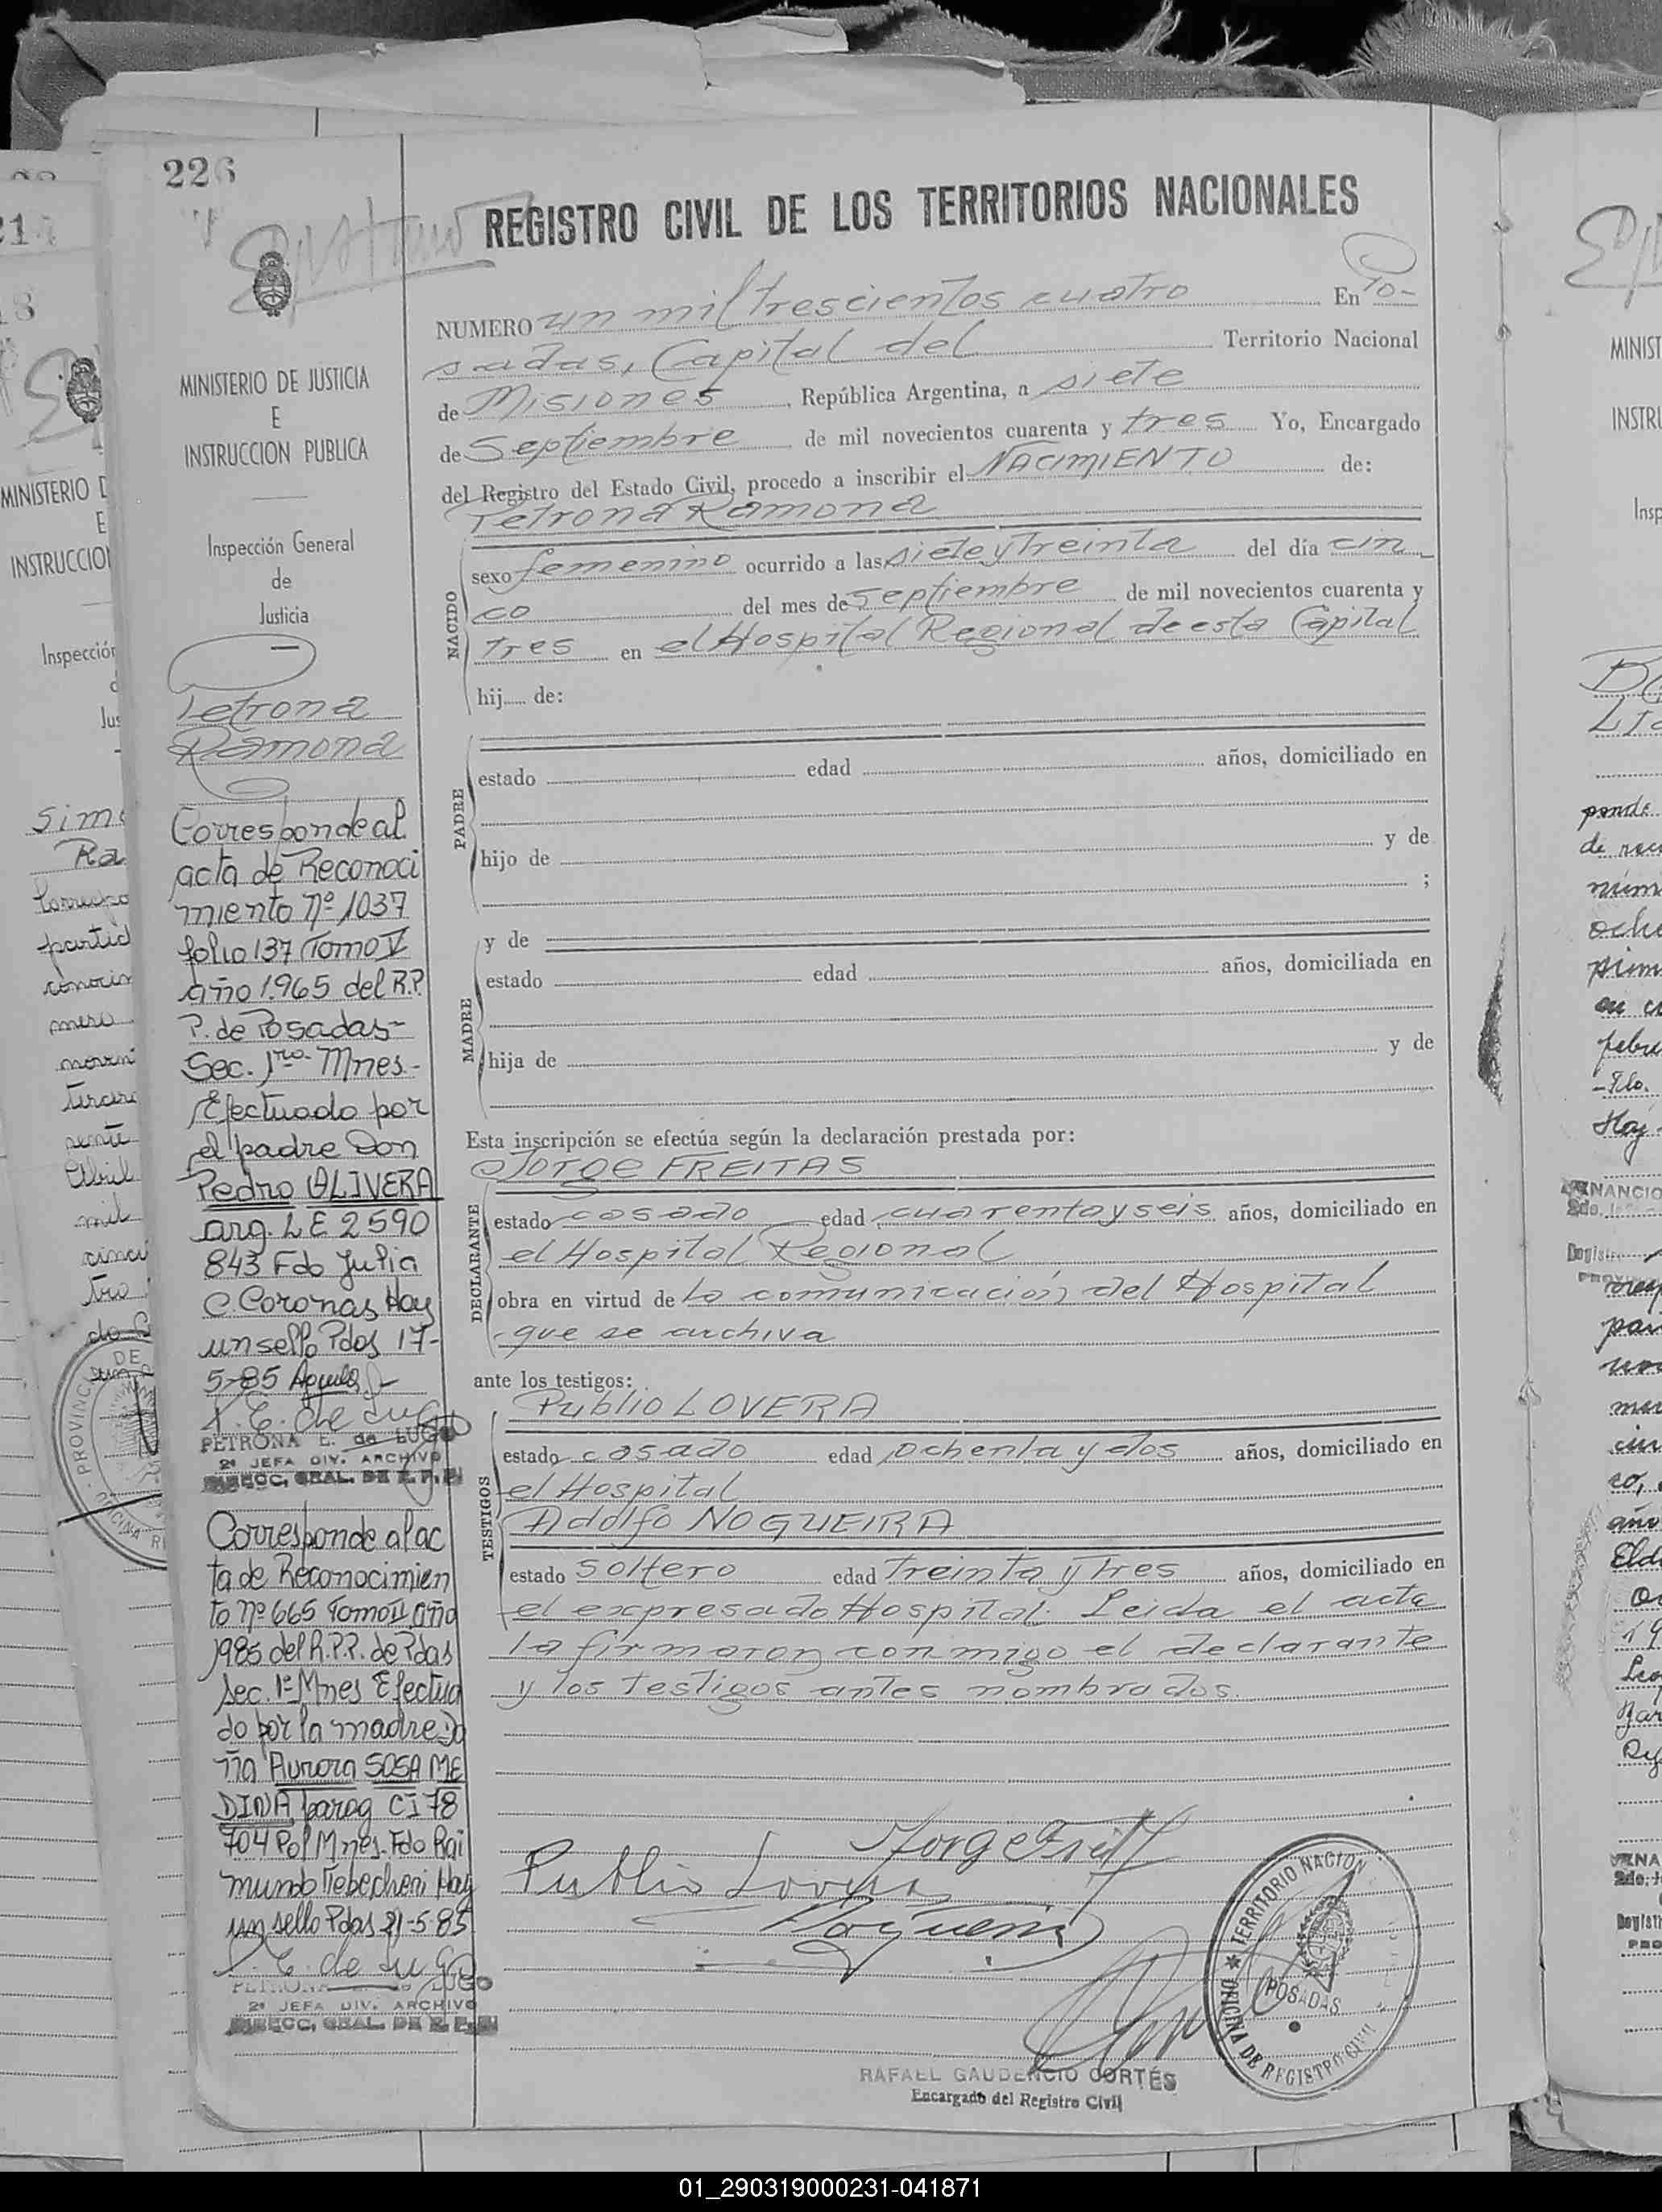 226
REGISTRO CIVIL DE LOS TERRITORIOS NACIONALES
NUMERO un mil trescientos cuatro En Po-
sadas, Capital del Territorio Nacional
de Misiones, República Argentina, a siete
de Septiembre de mil novecientos cuarenta y tres Yo, Encargado
del Registro del Estado Civil, procedo a inscribir el NACIMIENTO de:
Petrona Ramona
NACIDO
sexo femenino ocurrido a las siete y treinta del día cin
co del mes de Septiembre de mil novecientos cuarenta y
tres en el Hospital Regional de esta Capital
hij..... de:
PADRE
estado edad años, domiciliado en
hijo de y de
;
y de
MADRE
estado edad años, domiciliada en
hija de y de
Esta inscripción se efectúa según la declaración prestada por:
Jorge FREITAS
DECLARANTE
estado casado edad cuarenta y seis años, domiciliado en
el Hospital Regional
obra en virtud de la comunicación del Hospital
que se archiva
ante los testigos:
Publio LOVERA
TESTIGOS
estado casado edad ochenta y dos años, domiciliado en
el Hospital
Adolfo NOGUEIRA
estado soltero edad treinta y tres años, domiciliado en
el expresado Hospital. Leida el acta
la firmaron conmigo el declarante
y los testigos antes nombrados.
Publio Lovera
TERRITORIO NACION
POSADAS
OFICINA DE REGISTRO CIVIL
RAFAEL GAUDENCIO CORTÉS
Encargado del Registro Civil
MINISTERIO DE JUSTICIA
E
INSTRUCCION PUBLICA
Inspección General
de
Justicia
Petrona
Ramona
Corresponde al
acta de Reconoci
miento nº 1037
folio 137 Tomo V
año 1.965 del R.P.
P. de Posadas-
Sec. 1ra Mnes.-
Efectuado por
el padre Don
Pedro OLIVERA
arg. L E 2 590
843 Fdo Julia
C. Coronas Hay
un sello Pdas 17-
5-85
P. E. de Lugo
PETRONA E. de LUGO
2ª JEFA DIV. ARCHIVO
DIRECC. GRAL. DE R. P. P.
Corresponde al ac
ta de Reconocimien
to nº 665 Tomo II año
1985 del R.P.P. de Pdas
Sec. 1ª Mnes Efectua
do por la madre Do
ña Aurora SOSA ME
DINA parag CI 78
704 Pol Mnes. Fdo Rai
mundo Hay
un sello Pdas 21-5-85
P. E. de Lugo
2ª JEFA DIV. ARCHIVO
DIRECC. GRAL. DE R. P. P.
01_290319000231-041871